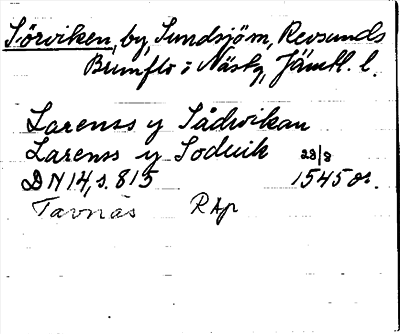 Sörviken, by, Sundsjöm, Revsunds
Brunflo o Näskn, Jämtl. l.
Larenss y Sådwikan
Larenss y Soduik 23/8
DN 14, s. 815 1545 or.
Tavnäs RAp